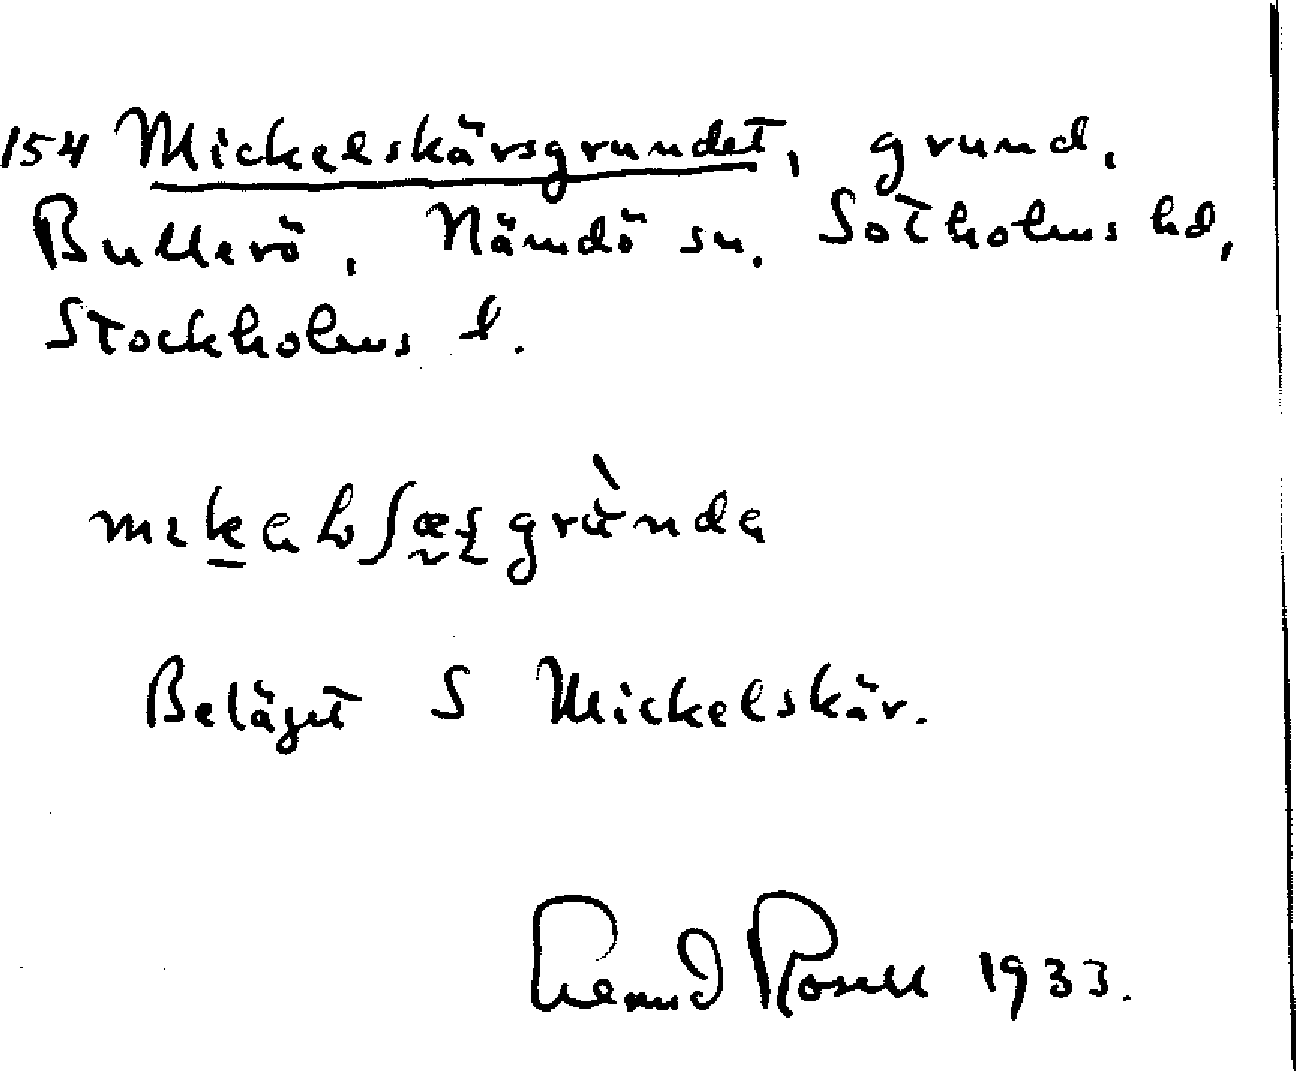 154 Mickelskärsgrundet, grund,
Bullerö, Nämdö sn. Sotholms hd,
Stockholms l.
Beläget S Mickelskär.
Rosell 1933.